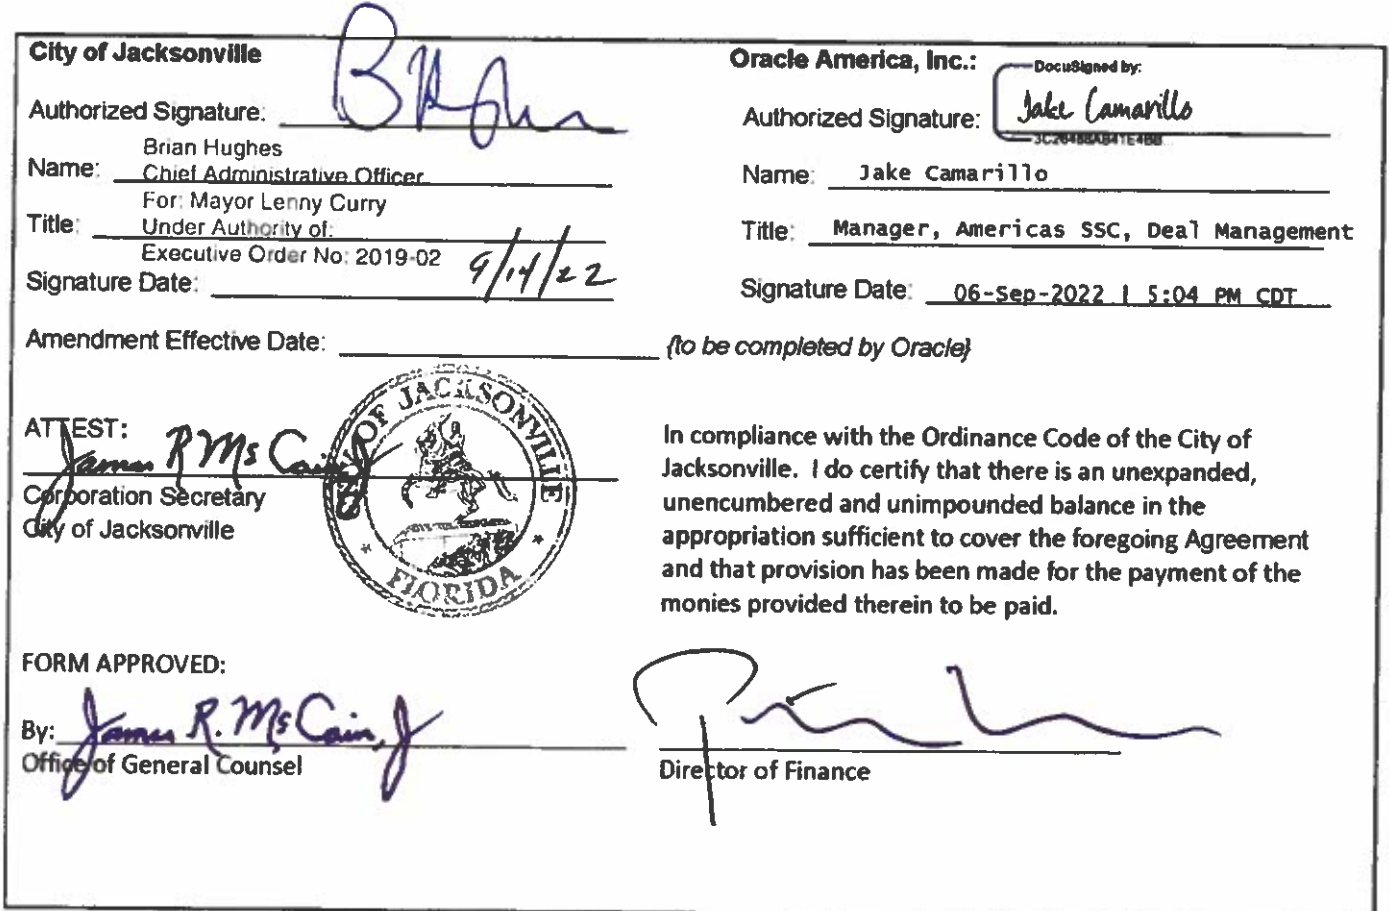 City of Jacksonville
Authorized Signature:
Brian Hughes
Name: Chief Administrative Officer
For: Mayor Lenny Curry
Title: Under Authority of:
Executive Order No: 2019-02
Signature Date: 9/14/22
Oracle America, Inc.:
DocuSigned by:
Authorized Signature: Jake Camarillo
Name: Jake Camarillo
Title: Manager, Americas SSC, Deal Management
Signature Date: 06-Sep-2022 | 5:04 PM CDT
Amendment Effective Date: {to be completed by Oracle}
ATTEST:
James R McCain
Corporation Secretary
City of Jacksonville
CITY OF JACKSONVILLE
FLORIDA
In compliance with the Ordinance Code of the City of
Jacksonville. I do certify that there is an unexpanded,
unencumbered and unimpounded balance in the
appropriation sufficient to cover the foregoing Agreement
and that provision has been made for the payment of the
monies provided therein to be paid.
FORM APPROVED:
By: James R. McCain, J
Office of General Counsel
Director of Finance